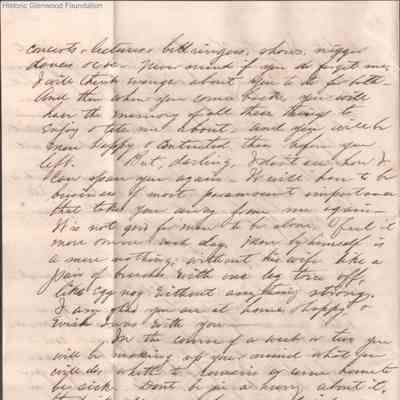 Historic Glenwood Foundation
concerts & lectures bell ringers, shows, nigger
dances &c &c - Never mind if you do forget me,
I will think enough about you to do for both -
And then when you come back, you will
have the memory of all these things to
enjoy & tell me about - and you will be
more happy & contented than before you
left. But, darling, I don't see how I
can spare you again - It will have to be
business of most paramount importance
that takes you away from me again -
It is not good for man to be alone. I feel it
more and more each day. Man by himself is
a mere nothing; without his wife like a
pair of breeches with one leg tore off,
like egg nog without anything strong.
I am glad you are at home & happy &
wish I was with you
In the course of a week or two you
will be making up your mind what you
will do, whether to remains or come home to
be sick. Don't be in a hurry about it.